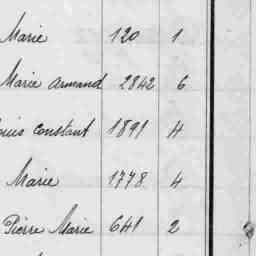 Marie 120 1
Marie Armand 2842 6
ouis Constant 1891 4
Marie 1778 4
Pierre Marie 641 2